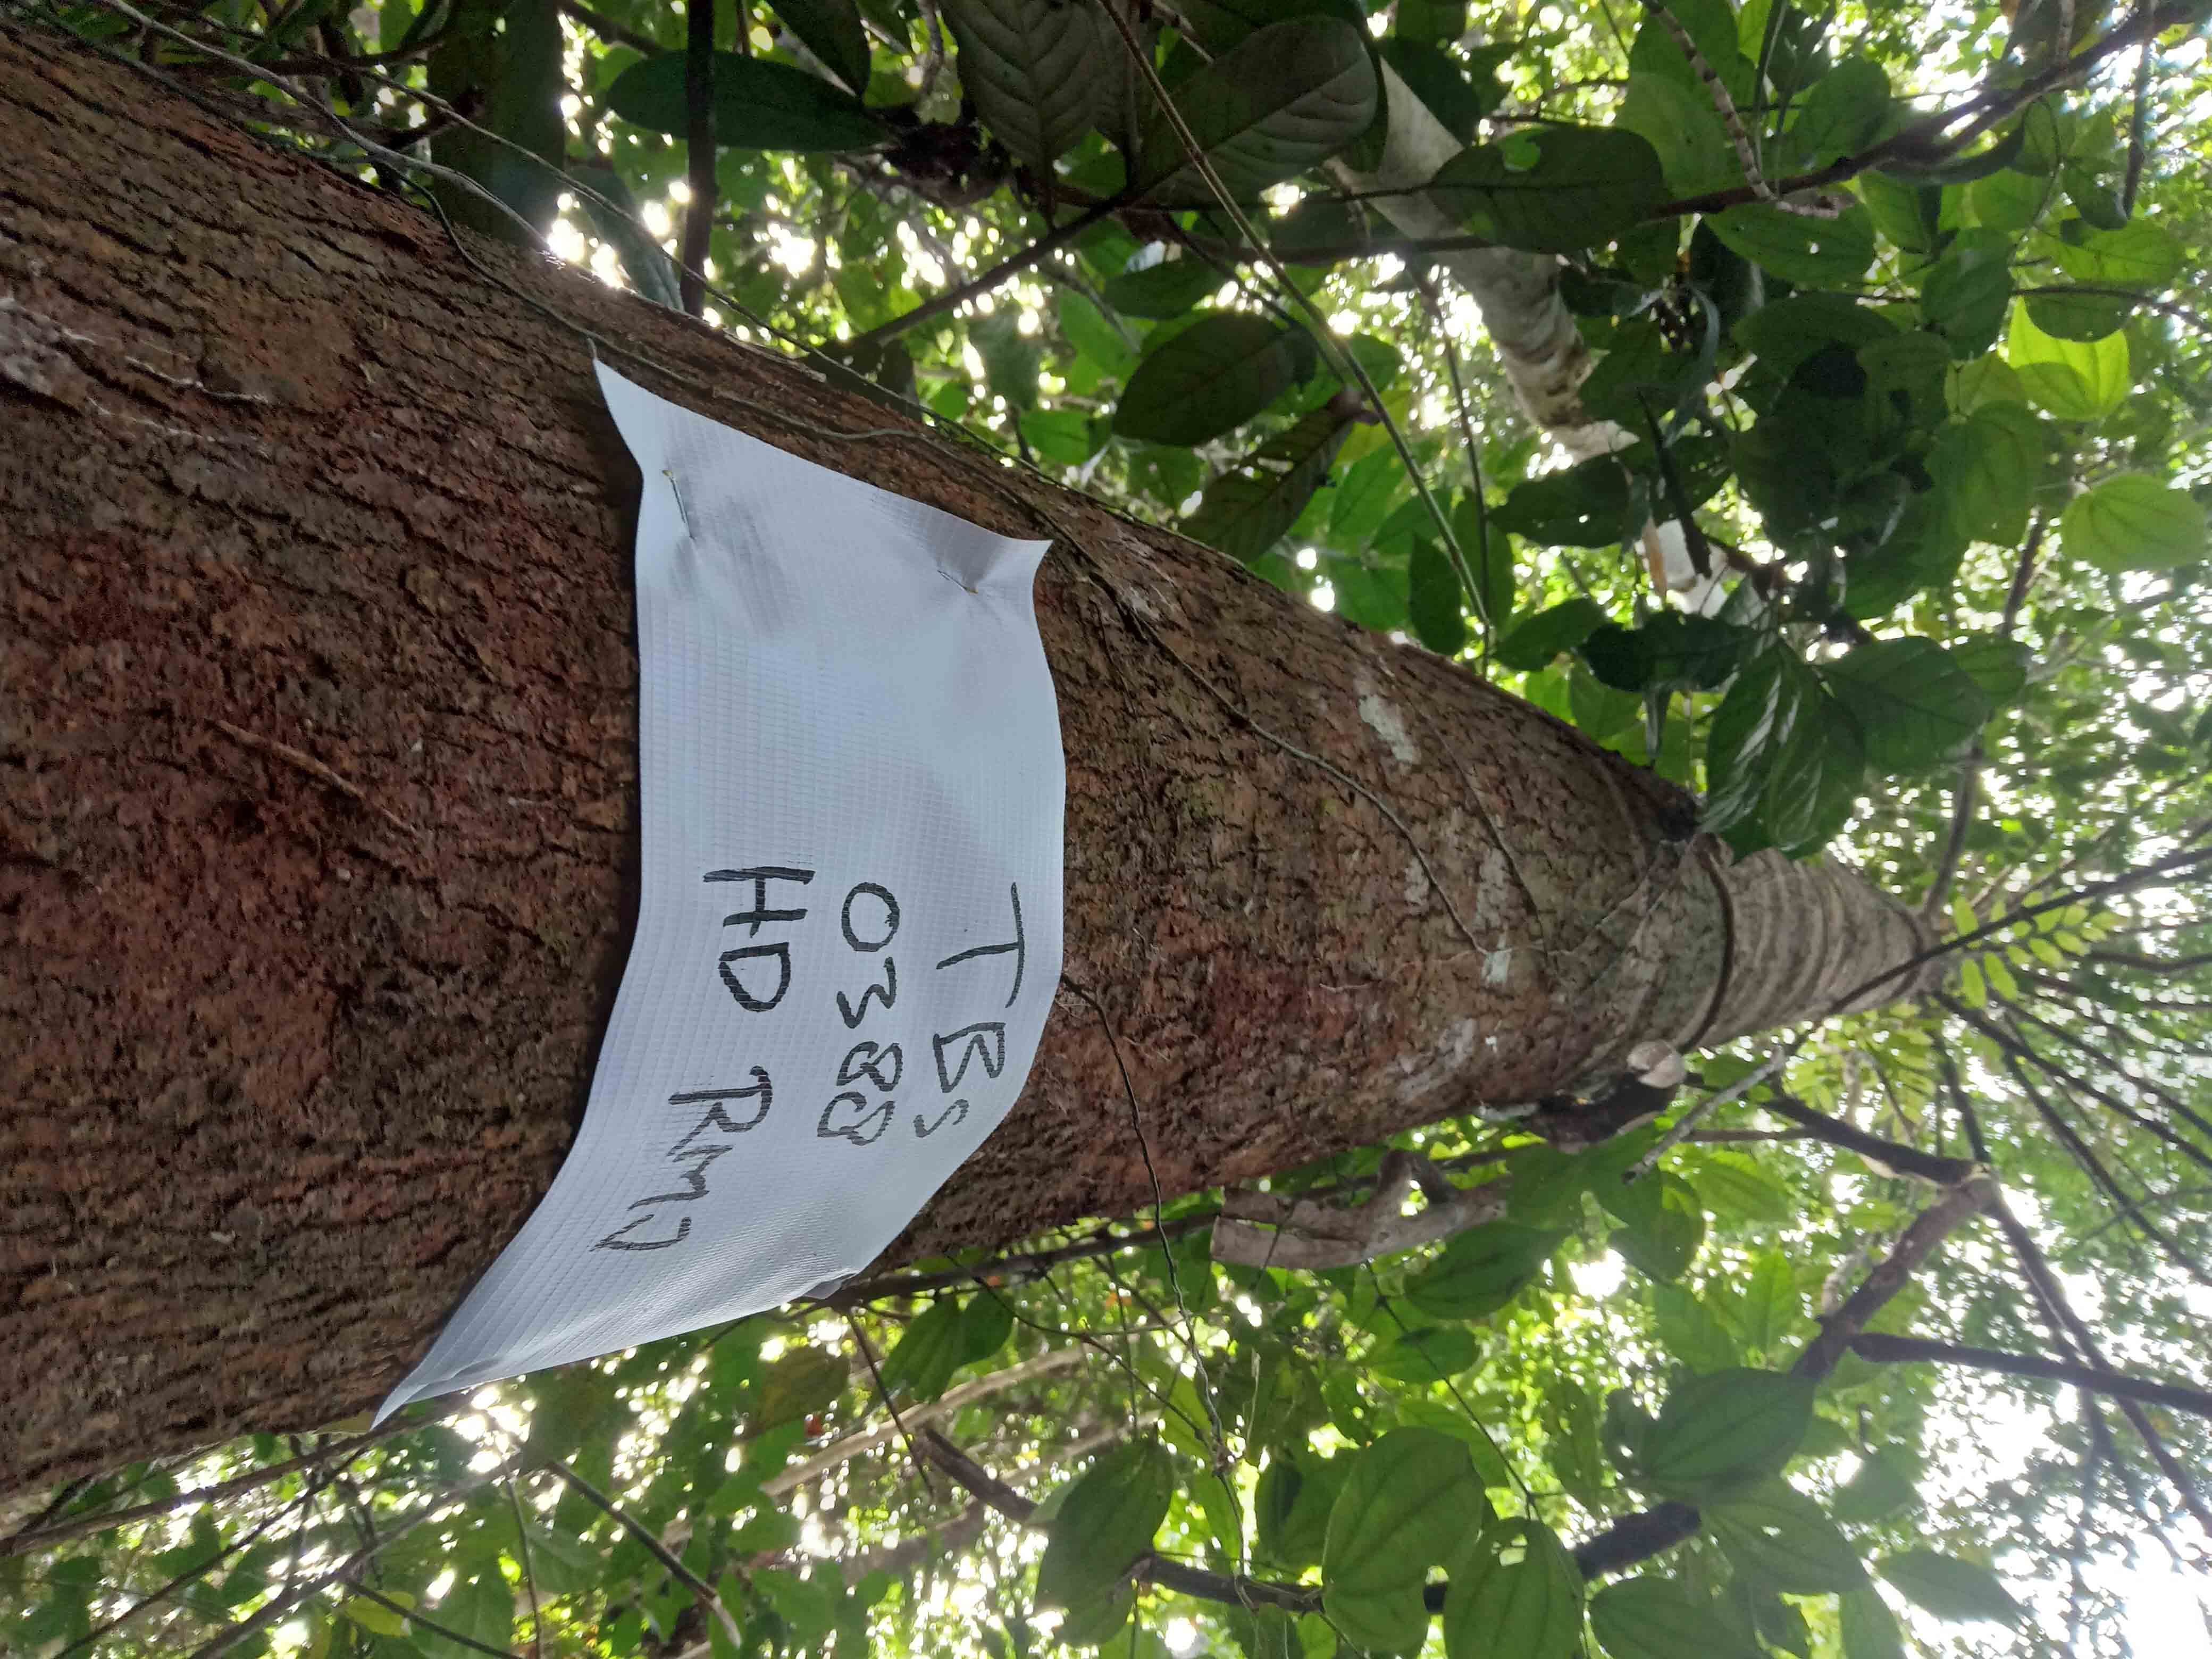 TBS
0388
HD RMJ